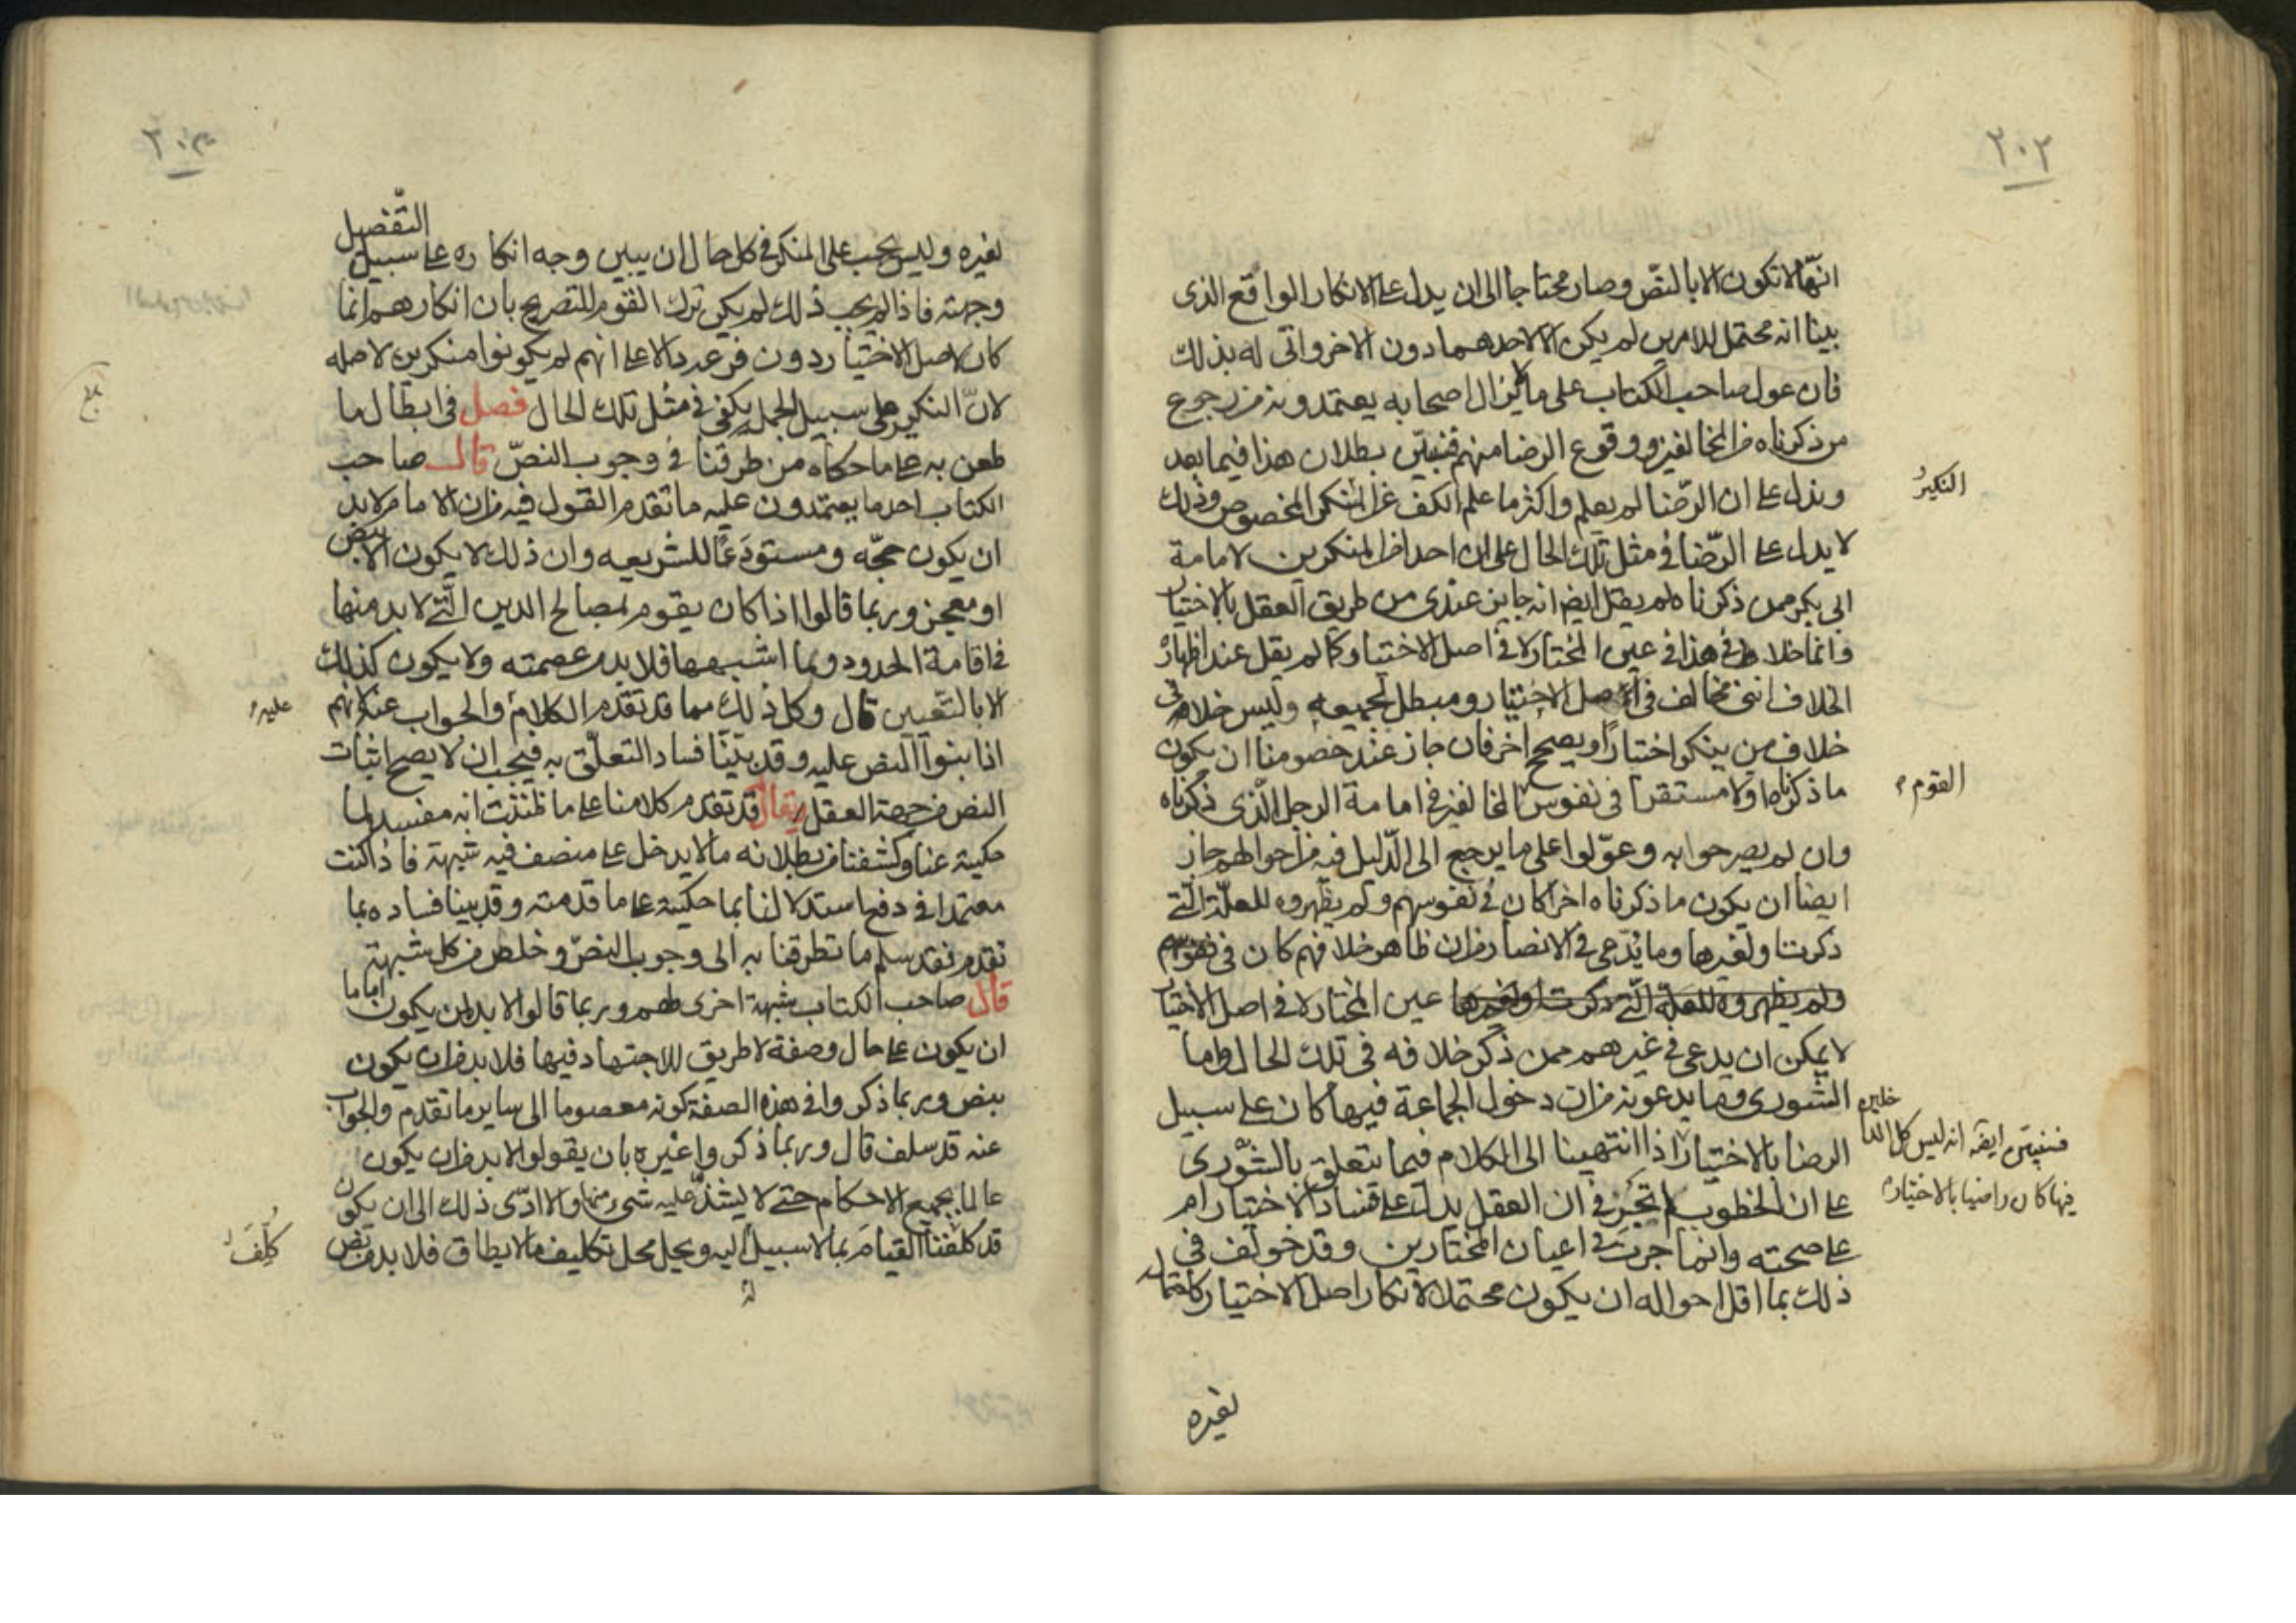 ٢٠٢
انّها لا تكون الا بالنصّ وصار محتاجا الى ان يدل على الانكار الواقع الذى
بينا انه محتمل للامرين لم يكن الا لاحدهما دون الاخر وانّى له بذلك
فان عول صاحب الكتاب على ما لا يزال اصحابه يعتمدونه من رجوع
من ذكرناه من المخالفين ووقوع الرضا منهم فنبيّن بطلان هذا فيما بعد
وندل على ان الرّضا لم يعلم واكثر ما علم الكف عن المنكر المخصوص وذلك
النكير
لا يدل على الرّضا فى مثل تلك الحال على ان احدا من المنكرين لامامة
ابى بكر ممن ذكرناه لم يقل ايضا انه جايز عندى من طريق العقل بالاختيار
وانما خلافى هذا فى عين المختار لا فى اصل الاختيار وكما لم يقل عند اظهاره
الخلاف اننى مخالف فى اصل الاختيار ومبطل لجميعه وليس خلافى
خلاف من ينكر اختيارا ويصحح اخر فان جاز عند خصومنا ان يكون
ما ذكرناه اولا مستقرا فى نفوس المخالفين فى امامة الرجل الّذى ذكرناه
القوم
وان لم يصرحوا به وعوّلوا على ما يرجع الى الدّليل فيه من احوالهم جاز
ايضا ان يكون ما ذكرناه اخرا كان فى نفوسهم ولم يظهروه للعلّة الّتى
ذكرت او لغيرها وما يدّعى فى الانصار من ان ظاهر خلافهم كان فى نفوسهم
ولم يظهروه للعلة الّتى ذكرت او لغيرها عين المختار لا فى اصل الاختيار
لا يمكن ان يدعى فى غيرهم ممن ذكر خلافه فى تلك الحال واما
الشورى وما يدعونه من ان دخول الجماعة فيها كان على سبيل
الرضا بالاختيار اذا انتهينا الى الكلام فيما يتعلق بالشّورى
فسنبيّن ايضه انه ليس كل الداخلين
فيها كان راضيا بالاختيار
على ان الخطوب لم تجر فى ان العقل يدل على فساد الاختيار ام
على صحته وانما جرت فى اعيان المختارين وقد خولف فى
ذلك بما اقل احواله ان يكون محتملا لانكار اصل الاختيار كاحتماله
لغيره
لغيره وليس يجب على المنكر فى كل حال ان يبين وجه انكاره على سبيل التّفصيل
وجهته فاذا لم يجب ذلك لم يكن ترك القوم للتصريح بان انكارهم انما
كان لاصل الاختيار دون فرعه دالا على انهم لم يكونوا منكرين لاصله
لانّ النكير على سبيل الجملة يكفى فى مثل تلك الحال فصل فى ابطال ما
بلغ
طعن به على ما حكاه من طرقنا فى وجوب النصّ قال صاحب
الكتاب احد ما يعتمدون عليه ما تقدم القول فيه من ان الامام لا بد
ان يكون حجّه ومستودَعًا للشريعه وان ذلك لا يكون الا بنص
او معجز وربما قالوا اذا كان يقوم لمصالح الدين الّتى لا بد منها
فى اقامة الحدود وما اشبهها فلا بد من عصمته ولا يكون كذلك
الا بالتّعيين قال وكل ذلك مما قد تقدم الكلام والجواب عنه لانهم
عليه
اذا بنوا النص عليه وقد بيّنّا فساد التعلّق به فيجب ان لا يصح اثبات
النص من جهة العقل يقال قد تقدم كلامنا على ما ظننت انه مفسد لما
حكيته عنا وكشفنا من بطلانه ما لا يدخل على منصف فيه شبهة فاذا كنت
معتمدا فى دفع استدلالنا بما حكيته على ما قدمته وقد بينا فساده بما
تقدم فقد سلم ما تطرقنا به الى وجوب النصّ وخلص من كل شبهة
قال صاحب الكتاب شبهة اخرى لهم وربما قالوا لا بد لمن يكون اماما
ان يكون على حال وصفة لا طريق للاجتهاد فيها فلا بد من ان يكون
بنص وربما ذكروا فى هذه الصفة كونه معصوما الى ساير ما تقدم والجواب
عنه قد سلف قال وربما ذكروا غيره بان يقولوا لا بد من ان يكون
عالما بجميع الاحكام حتى لا يشذّ عليه شى منها والا ادّى ذلك الى ان يكون
قد كلفنا القيام بما لا سبيل اليه ويحل محل تكليف ما لا يطاق فلا بد من نص
كُلِّفَ